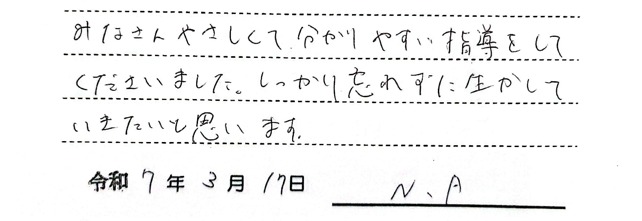 みなさんやさしくて、分かりやすい指導をして
くださいました。しっかり忘れずに生かして
いきたいと思います。
令和 7 年 3 月 17日 N、A